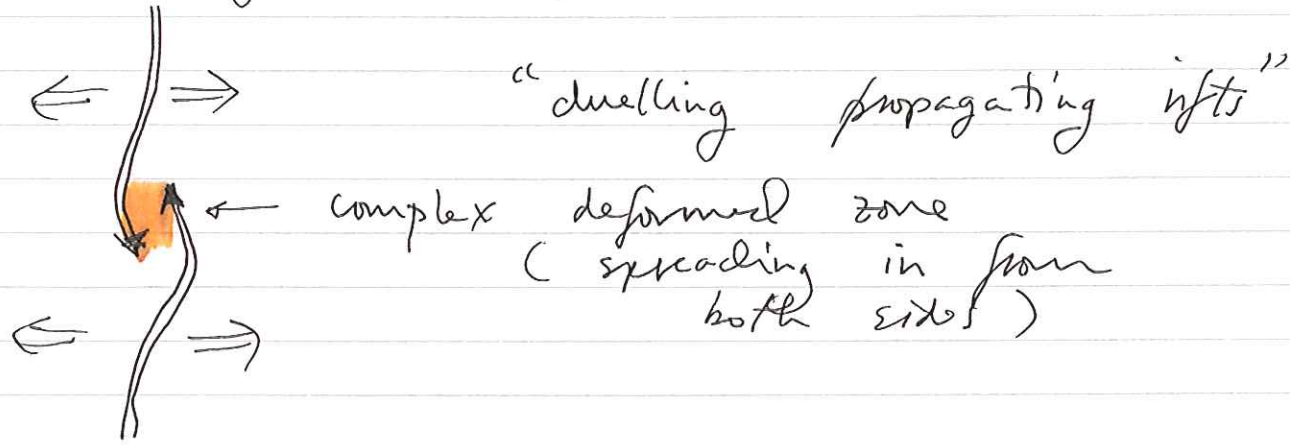 "duelling propagating rifts"
← complex deformed zone
( spreading in from
both sides )